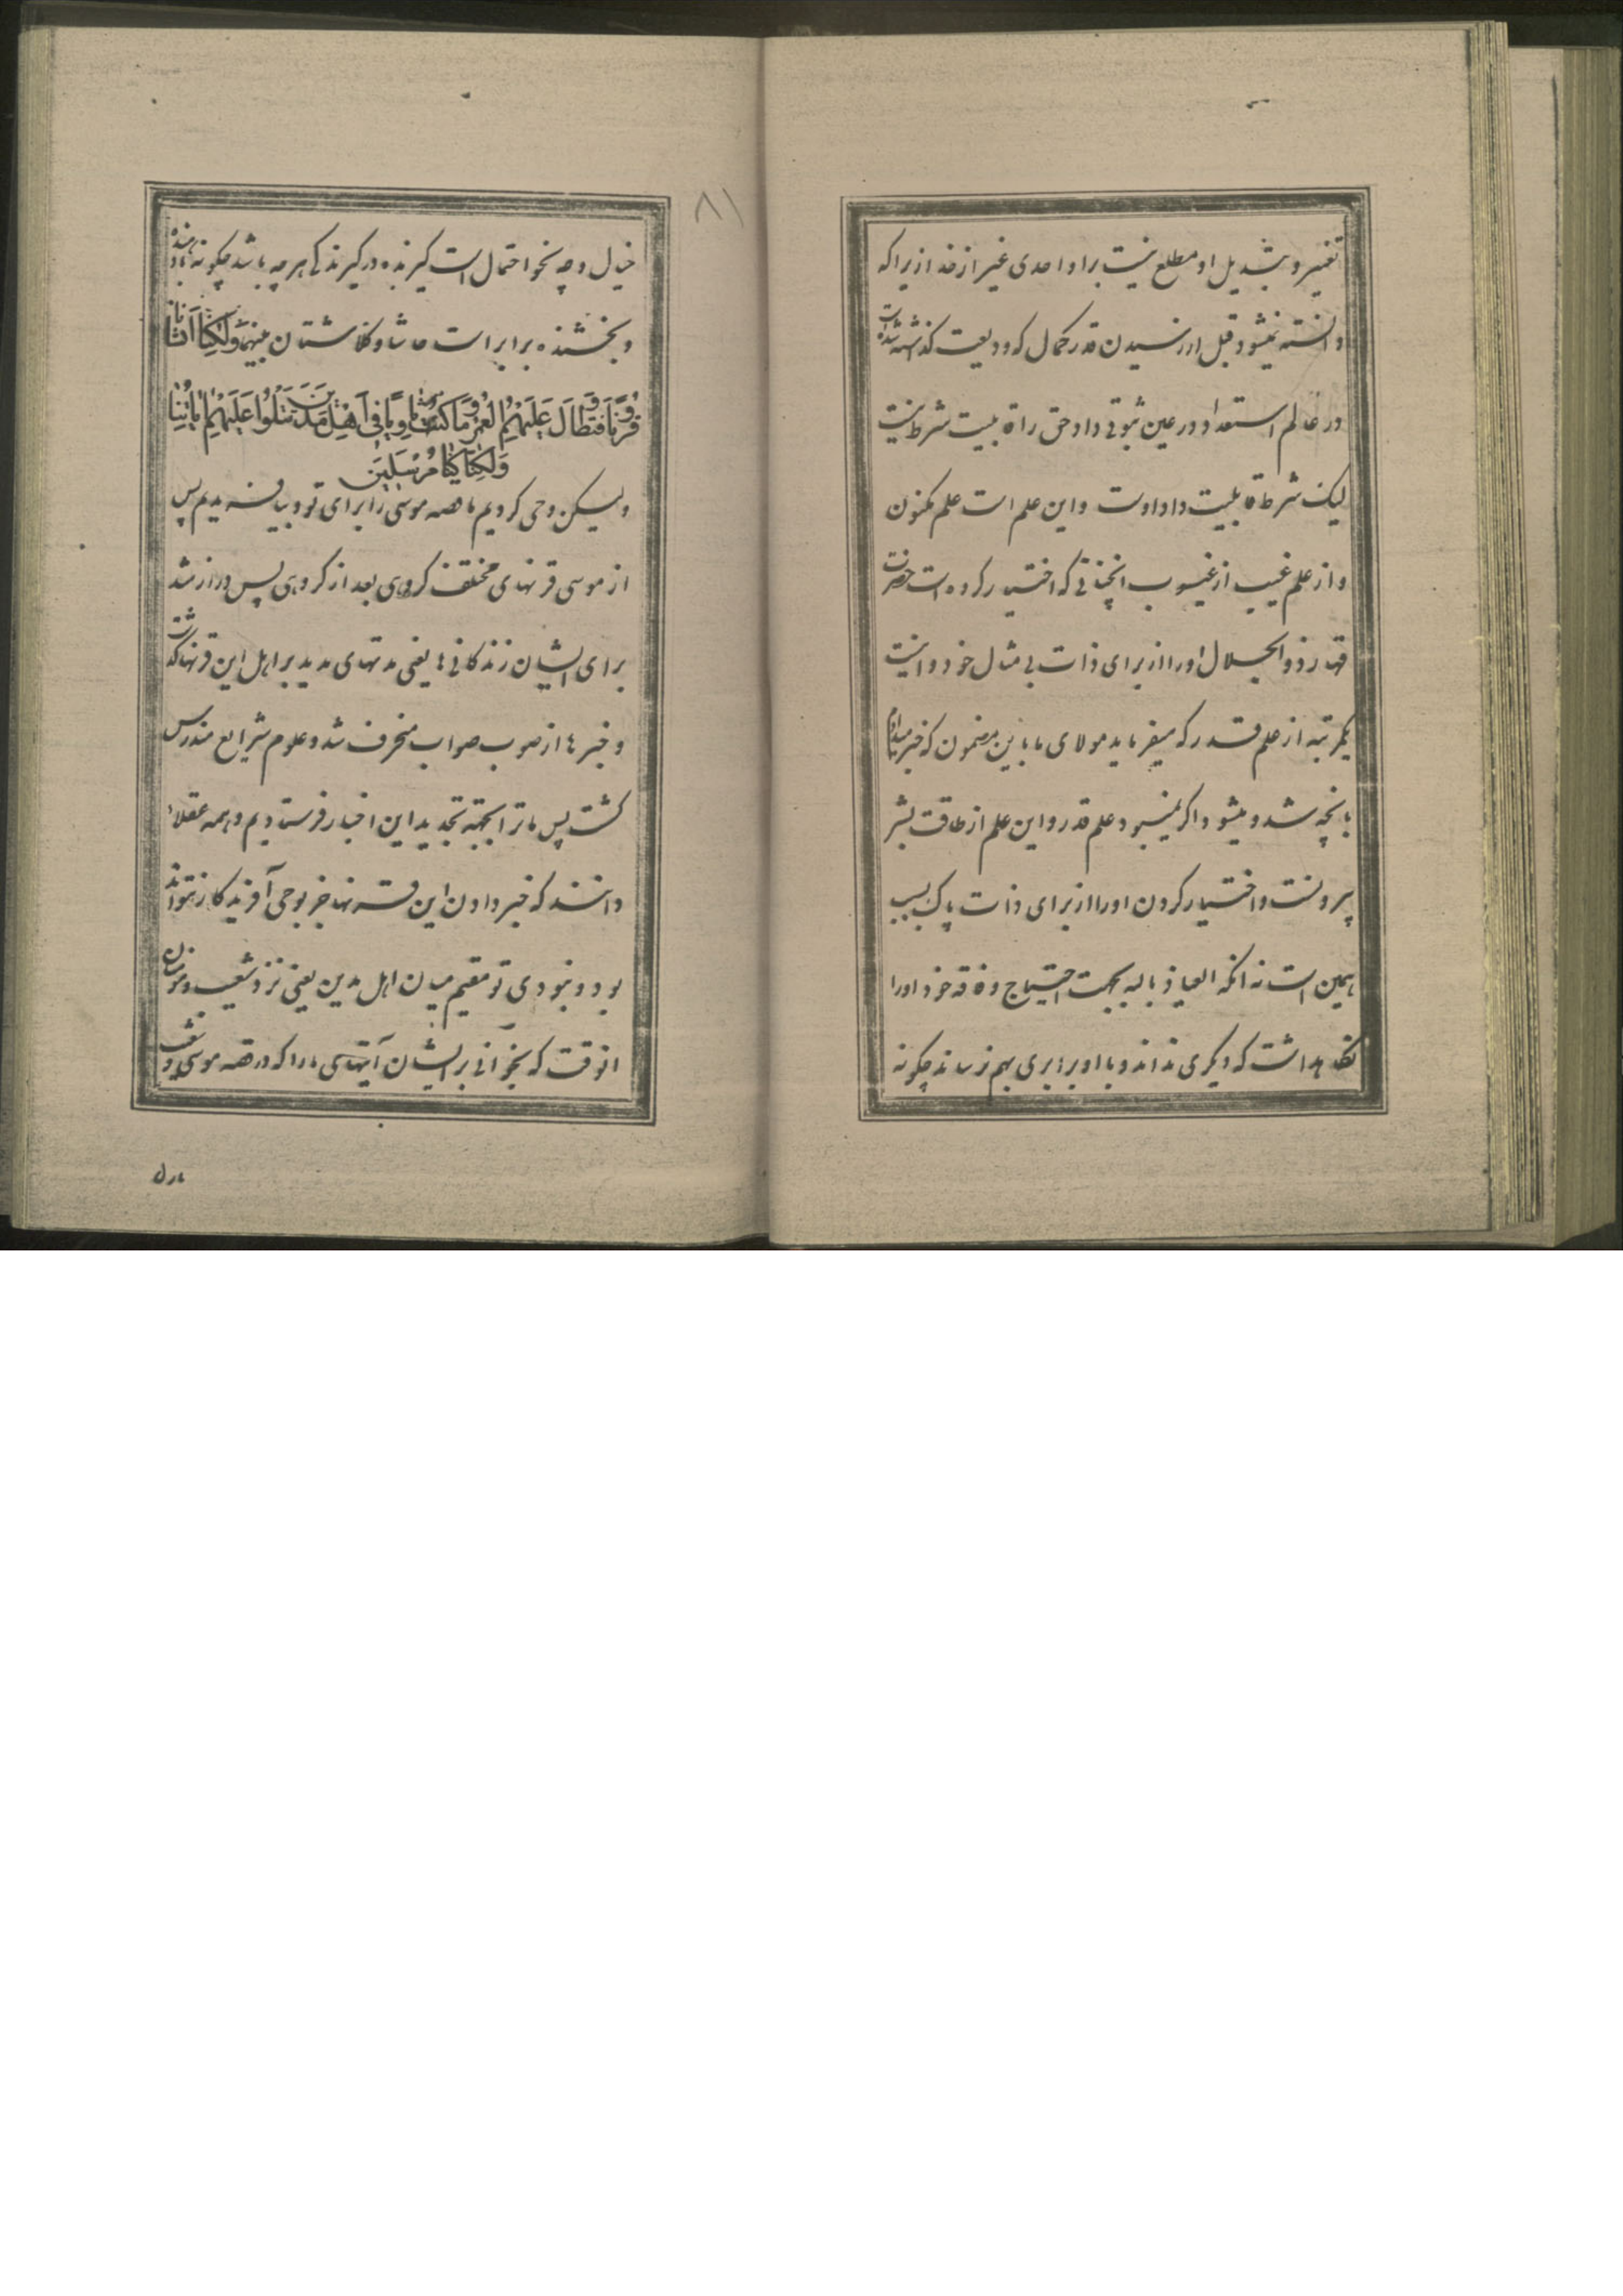 تغییر و تبدیل او مطلع نیست بر او احدی غیر از خدا زیرا که
دانسته نمیشود قبل از رسیدن قدر کمال که ودیعت گذاشته شده است
در عالم استعداد در عین ثبوتی داد حق را قابلیت شرط نیست
لیک شرط قابلیت داد اوست و این علم است علم مکنون
و از علم غیب از غیوب انچنانی که اختیار کرده است حضرت
قهار ذو الجلال او را از برای ذات بی مثال خود و اینست
یکمرتبه از علم قدر که میفرماید مولای ما باین مضمون که خبر میدادم
بانچه شده و میشود اگر نمیبود علم قدر و این علم از طاقت بشر
بیرونست و اختیار کردن او را از برای ذات پاک بسبب
همین است نه انکه العیاذ بالله بجهت احتیاج و فاقه خود او را
نگاه داشت که دیگری نداند و با او برابری بهم نرساند چگونه
٨١
خیال و چه نحو احتمال است گیرنده در گیرندگی هر چه باشد چگونه با دهنده
و بخشنده برابر است حاشا و کلا شتان بینهما وَلَكِنَّا أَنْشَأْنَا
قُرُونًا فَتَطَاوَلَ عَلَيْهِمُ الْعُمُرُ وَمَا كُنْتَ ثَاوِيًا فِي أَهْلِ مَدْيَنَ تَتْلُوا عَلَيْهِمْ آيَاتِنَا
وَلَكِنَّا كُنَّا مُرْسِلِينَ
ولیکن وحی کردیم ما قصه موسی را برای تو و بیافریدیم پس
از موسی قرنهای مختلف گروهی بعد از گروهی پس دراز شد
برای ایشان زندگانی ها یعنی مدتهای مدید بر اهل این قرنها گذشت
و خبرها از صوب صواب منحرف شد و علوم شرایع مندرس
گشت پس ما ترا بجهة تجدید این اخبار فرستادیم و همه عقلاء
دانند که خبر دادن این قصه‌ها جز بوحی آفریدگار نتواند
بود و نبودی تو مقیم میان اهل مدین یعنی نزد شعیب و مومنان
انوقت که بخوانی بر ایشان آیتهای ما را که در قصه موسی و شعیب